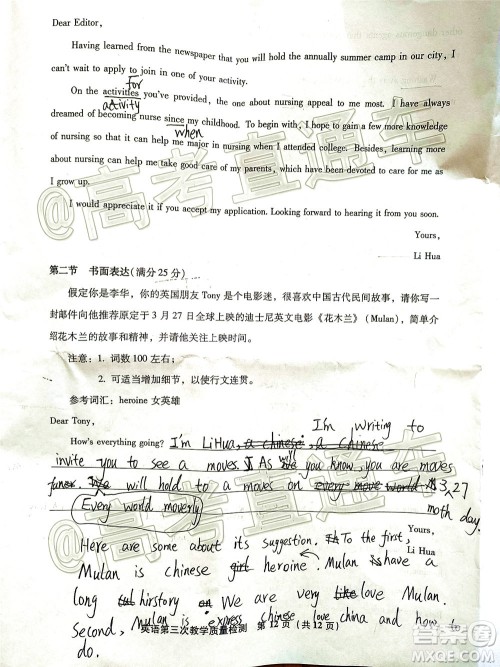 Dear Editor,
Having learned from the newspaper that you will hold the annually summer camp in our city, I
can't wait to apply to join in one of your activity.
for
On the activities you've provided, the one about nursing appeal to me most. I have always
activity
dreamed of becoming nurse since my childhood. To begin with, I hope to gain a few more knowledge
when
of nursing so that it can help me major in nursing when I attended college. Besides, learning more
about nursing can help me take good care of my parents, which have been devoted to care for me as
I grow up.
I would appreciate it if you accept my application. Looking forward to hearing it from you soon.
Yours,
Li Hua
第二节 书面表达(满分25分)
假定你是李华，你的英国朋友Tony是个电影迷，很喜欢中国古代民间故事，请你写一
封邮件向他推荐原定于3月27日全球上映的迪士尼英文电影《花木兰》(Mulan)，简单介
绍花木兰的故事和精神，并请他关注上映时间。
注意：1. 词数100左右；
2. 可适当增加细节，以使行文连贯。
参考词汇：heroine 女英雄
Dear Tony,
I'm writing to
How's everything going? I'm LiHua, a chinese, a Chinese
invite you to see a moves. As you know, you are moves
will
will hold to a moves on every move world 3,27
Every world moverly
moth day.
Yours,
Li Hua
Here are some about its suggestion. To the first,
Mulan is chinese girl heroine. Mulan have a
long hirstory. We are very like love Mulan.
Second, Mulan is express chinese love and how to
do.
英语第三次教学质量检测 第12页(共12页)
@高考直通车
@高考直通车
答案圈
MXQE.COM